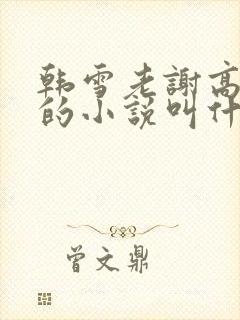 韩雪老謝高
的小説叫什
曾文鼎